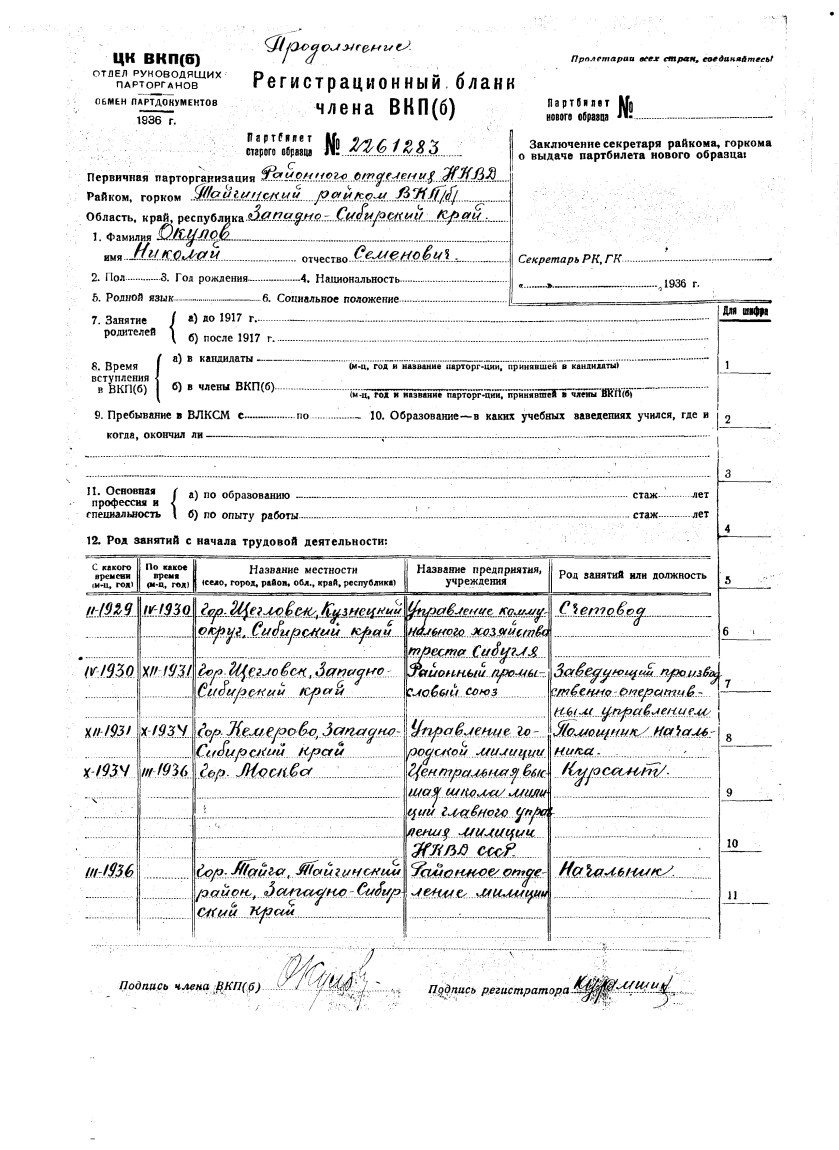 Продолжение.
ЦК ВКП(б)
ОТДЕЛ РУКОВОДЯЩИХ
ПАРТОРГАНОВ
ОБМЕН ПАРТДОКУМЕНТОВ
1936 г.
Пролетарии всех стран, соединяйтесь!
Регистрационный бланк
члена ВКП(б)
Партбилет
старого образца № 2261283
Партбилет
нового образца №
Заключение секретаря райкома, горкома
о выдаче партбилета нового образца:
Первичная парторганизация Районного отделения НКВД
Райком, горком Тайгинский райком ВКП/б/
Область, край, республика Западно-Сибирский край.
1. Фамилия Окулов
имя Николай отчество Семенович.
Секретарь РК, ГК
2. Пол 3. Год рождения 4. Национальность
« » 1936 г.
5. Родной язык 6. Социальное положение
Для шифра
7. Занятие родителей
а) до 1917 г.
б) после 1917 г.
8. Время вступления в ВКП(б)
а) в кандидаты
(м-ц, год и название парторг-ции, принявшей в кандидаты)
1
б) в члены ВКП(б)
(м-ц, год и название парторг-ции, принявшей в члены ВКП(б)
9. Пребывание в ВЛКСМ с по 10. Образование—в каких учебных заведениях учился, где и
2
когда, окончил ли
3
11. Основная профессия и специальность
а) по образованию стаж лет
б) по опыту работы стаж лет
4
12. Род занятий с начала трудовой деятельности:
С какого времени (м-ц, год)
По какое время (м-ц, год)
Название местности
(село, город, район, обл., край, республика)
Название предприятия, учреждения
Род занятий или должность
5
II-1929 IV-1930 Гор. Щегловск, Кузнецкий Управление комму- Счетовод
округ, Сибирский край нального хозяйства
6
треста Сибугля
IV-1930 XII-1931 Гор. Щегловск, Западно- Районный промы- Заведующий производ
Сибирский край словый союз ственно-оператив-
7
ным управлением
XII-1931 X-1934 Гор. Кемерово, Западно- Управление го- Помощник началь-
8
Сибирский край родской милиции ника.
X-1934 III-1936 Гор. Москва Центральная выс- Курсант.
шая школа мили-
9
ции главного управ
ления милиции
10
НКВД СССР.
III-1936 Гор. Тайга, Тайгинский Районное отде- Начальник.
район, Западно-Сибир- ление милиции
11
ский край
Подпись члена ВКП(б) Окулов
Подпись регистратора